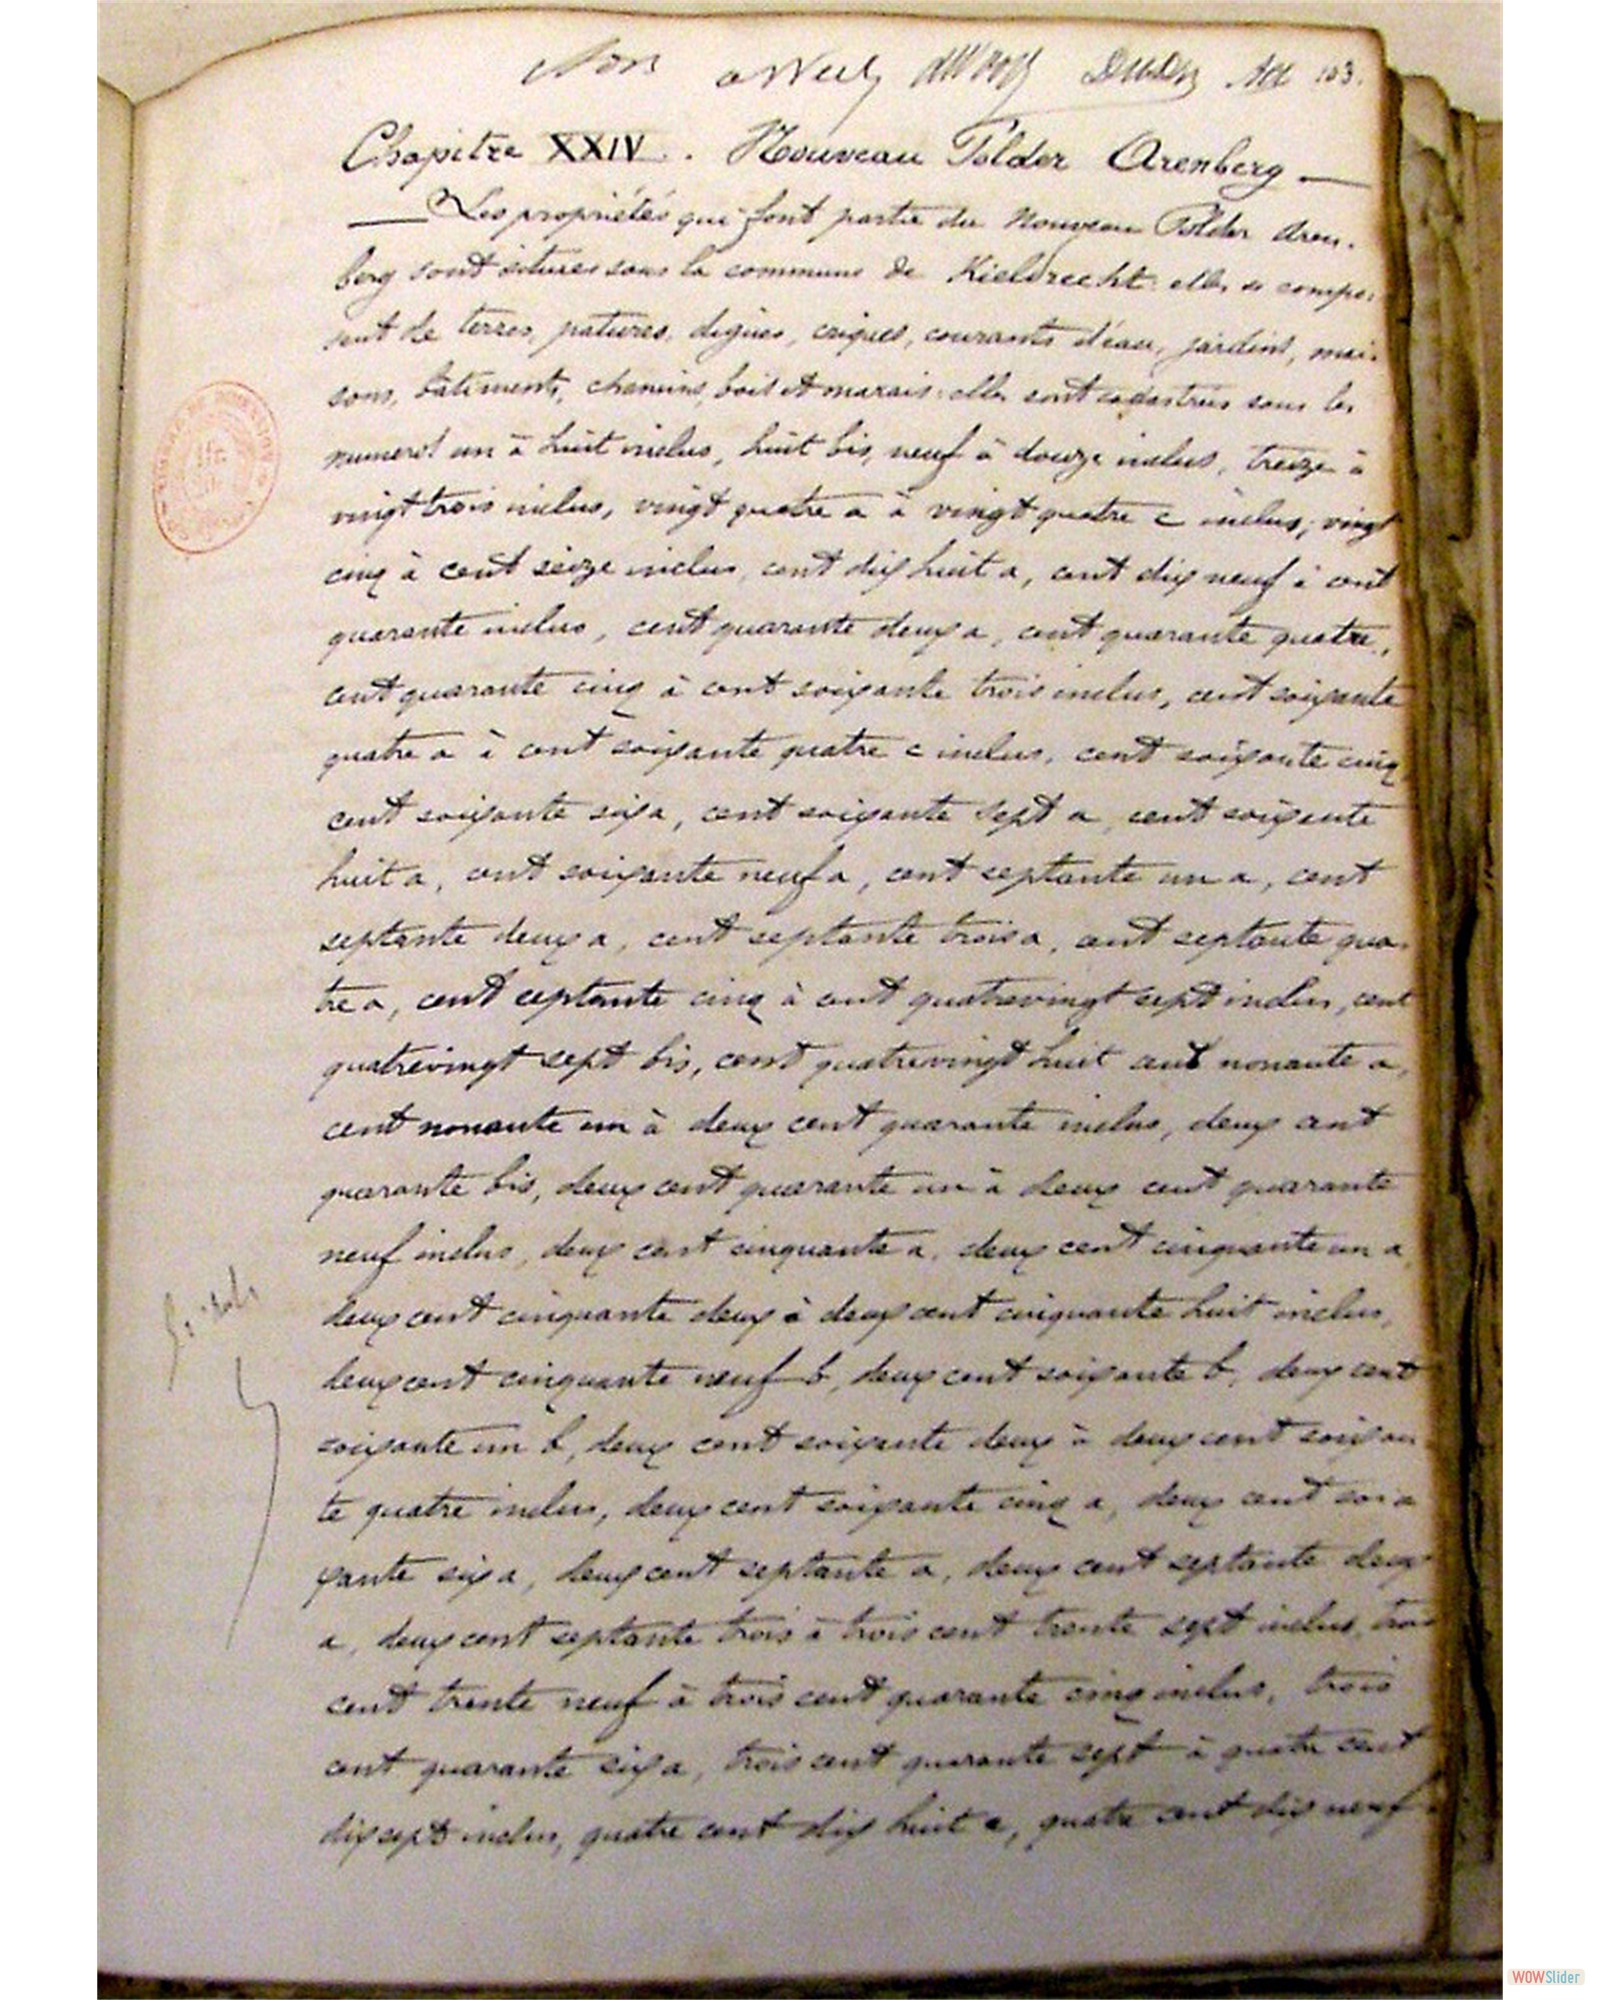 103.
Chapitre XXIV. Nouveau Polder Arenberg —
— Les propriétés qui font partie du Nouveau Polder Aren-
berg sont situées sous la commune de Kieldrecht: elles se compo-
sent de terres, patures, digues, criques, courants d'eau, jardins, mai-
sons, bâtiments, chemins, bois et marais: elles sont cadastrées sous les
numeros un à huit inclus, huit bis, neuf à douze inclus, treize à
vingt trois inclus, vingt quatre a à vingt quatre c inclus, vingt
cinq à cent seize inclus, cent dix huit a, cent dix neuf à cent
quarante inclus, cent quarante deux a, cent quarante quatre,
cent quarante cinq à cent soixante trois inclus, cent soixante
quatre a à cent soixante quatre c inclus, cent soixante cinq
cent soixante six a, cent soixante sept a, cent soixante
huit a, cent soixante neuf a, cent septante un a, cent
septante deux a, cent septante trois a, cent septante qua-
tre a, cent septante cinq à cent quatrevingt sept inclus, cent
quatrevingt sept bis, cent quatrevingt huit cent nonante a,
cent nonante un à deux cent quarante inclus, deux cent
quarante bis, deux cent quarante un à deux cent quarante
neuf inclus, deux cent cinquante a, deux cent cinquante un a,
deux cent cinquante deux à deux cent cinquante huit inclus,
deux cent cinquante neuf b, deux cent soixante b, deux cent
soixante un b, deux cent soixante deux à deux cent soixan
te quatre inclus, deux cent soixante cinq a, deux cent soi
xante six a, deux cent septante a, deux cent septante deux
a, deux cent septante trois à trois cent trente sept inclus, trois
cent trente neuf à trois cent quarante cinq inclus, trois
cent quarante six a, trois cent quarante sept à quatre cent
dix sept inclus, quatre cent dix huit a, quatre cent dix neuf
WOWSlider